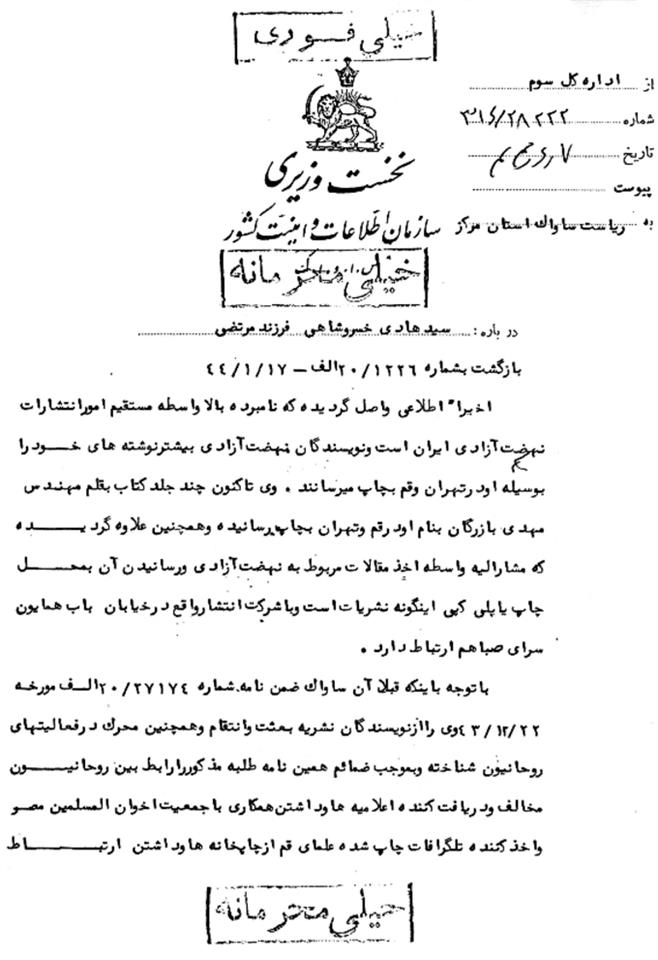 خیلی فوری
از اداره کل سوم
شماره ۳۱۶/۲۸۲۲۲
تاریخ
پیوست
نخست وزیری
سازمان اطلاعات و امنیت کشور
به ریاست ساواک استان مرکز
خیلی محرمانه
درباره : سید هادی خسروشاهی فرزند مرتضی
بازگشت بشماره ۲۰/۱۲۲۶الف – ۴۴/۱/۱۷
اخیرا" اطلاعی واصل گردیده که نامبرده بالا واسطه مستقیم امور انتشارات
نهضت آزادی ایران است و نویسندگان نهضت آزادی بیشتر نوشته های خود را
بوسیله او در تهران و قم بچاپ میرسانند . وی تاکنون چند جلد کتاب بقلم مهندس
مهدی بازرگان بنام او در قم و تهران بچاپ رسانیده و همچنین علاوه گردیده
که مشارالیه واسطه اخذ مقالات مربوط به نهضت آزادی و رسانیدن آن بمحل
چاپ یا پلی کپی اینگونه نشریات است و با شرکت انتشار واقع در خیابان باب همایون
سرای صبا هم ارتباط دارد .
با توجه باینکه قبلا آن ساواک ضمن نامه شماره ۲۰/۲۷۱۷۴الف مورخه
۴۳/۱۲/۲۲ وی را از نویسندگان نشریه بعثت و انتقام و همچنین محرک در فعالیتهای
روحانیون شناخته و بموجب ضمائم همین نامه طلبه مذکور را رابط بین روحانیون
مخالف و دریافت کننده اعلامیه ها و داشتن همکاری با جمعیت اخوان المسلمین مصر
و اخذ کننده تلگرافات چاپ شده علمای قم از چاپخانه ها و داشتن ارتباط
خیلی محرمانه